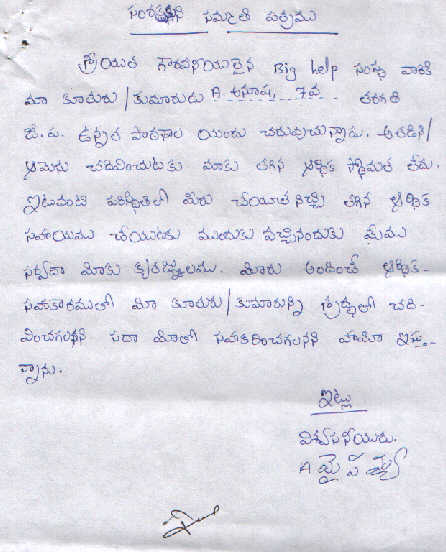 సంరక్షకుని సమ్మతి పత్రము
శ్రీయుత గౌరవనీయులైన Big help సంస్థ వారికి
మా కూతురు/కుమారుడు A అనూష 7వ తరగతి
జి.ప. ఉన్నత పాఠశాల యందు చదువుచున్నారు. అతడిని/
ఆమెను చదివించుటకు మాకు తగిన ఆర్థిక స్తోమత లేదు.
ఇటువంటి పరిస్థితిలో మీరు చేయూతనిచ్చి తగిన ఆర్థిక
సహాయము చేయుటకు ముందుకు వచ్చినందుకు మేము
సర్వదా మీకు కృతజ్ఞులము. మీరు అందించే ఆర్థిక-
సహకారముతో మా కూతురు/కుమారున్ని శ్రద్ధతో చది-
వించగలనని సదా మీతో సహకరించగలనని హామీ ఇస్తు-
న్నాను.
ఇట్లు
విశ్వసనీయుడు.
A